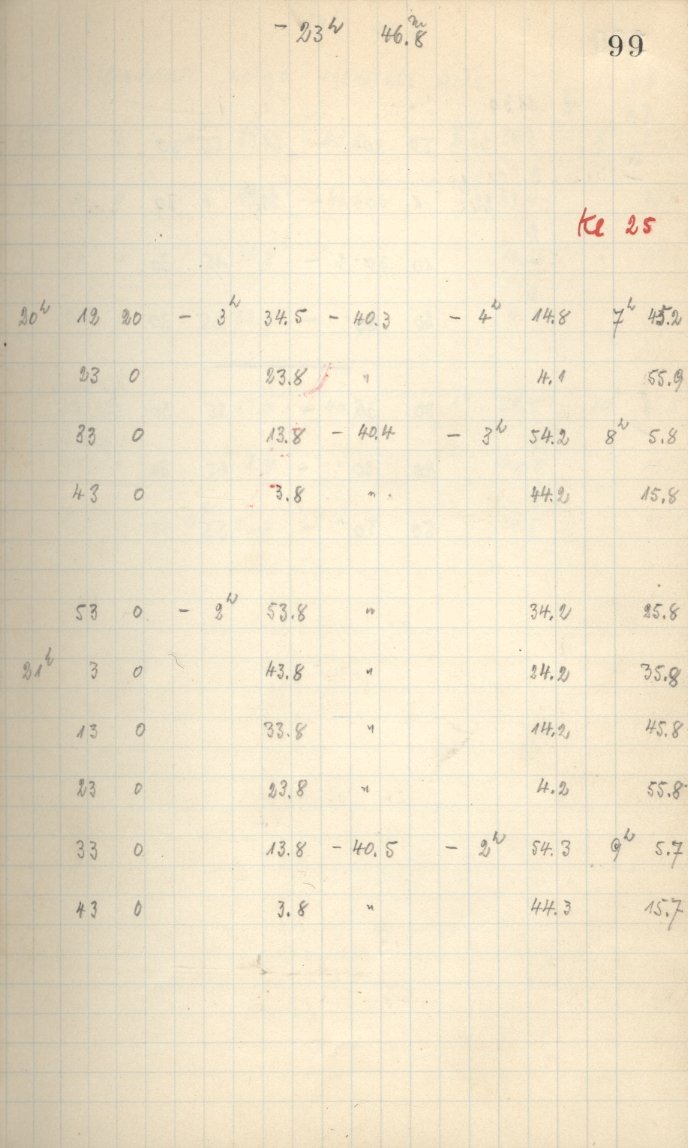 - 23h 46.8m
99
Ke 25
20h 12 20 - 3h 34.5 - 40.3 - 4h 14.8 7h 45.2
23 0 23.8 " 4.1 55.9
33 0 13.8 - 40.4 - 3h 54.2 8h 5.8
43 0 3.8 " 44.2 15.8
53 0 - 2h 53.8 " 34.2 25.8
21h 3 0 43.8 " 24.2 35.8
13 0 33.8 " 14.2 45.8
23 0 23.8 " 4.2 55.8
33 0 13.8 - 40.5 - 2h 54.3 9h 5.7
43 0 3.8 " 44.3 15.7